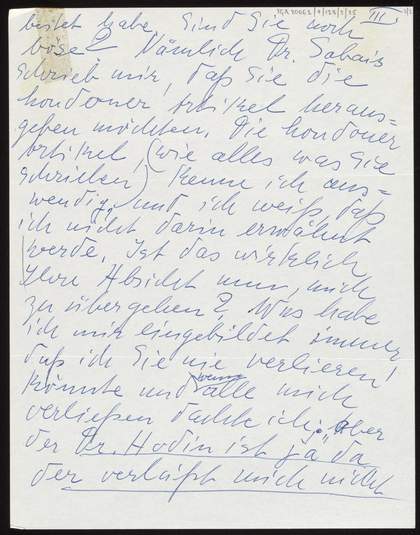 TGA 20062/4/123/2/25
III
1/1
beitet habe, Sind Sie noch
böse? Nämlich Dr. Sabais
schrieb mir, daß Sie die
Londoner Artikel heraus=
geben möchten. Die Londoner
Artikel, (wie alles was Sie
schrieben) kenne ich aus=
wendig, und ich weiß, daß
ich nicht darin erwähnt
werde. Ist das wirklich
Ihre Absicht nun, mich
zu übergehen? Was habe
ich mir eingebildet immer
daß ich Sie nie verlieren
könnte und wenn alle mich
verließen dachte ich: Aber
der Dr. Hodin ist ja da
der verläßt mich nicht